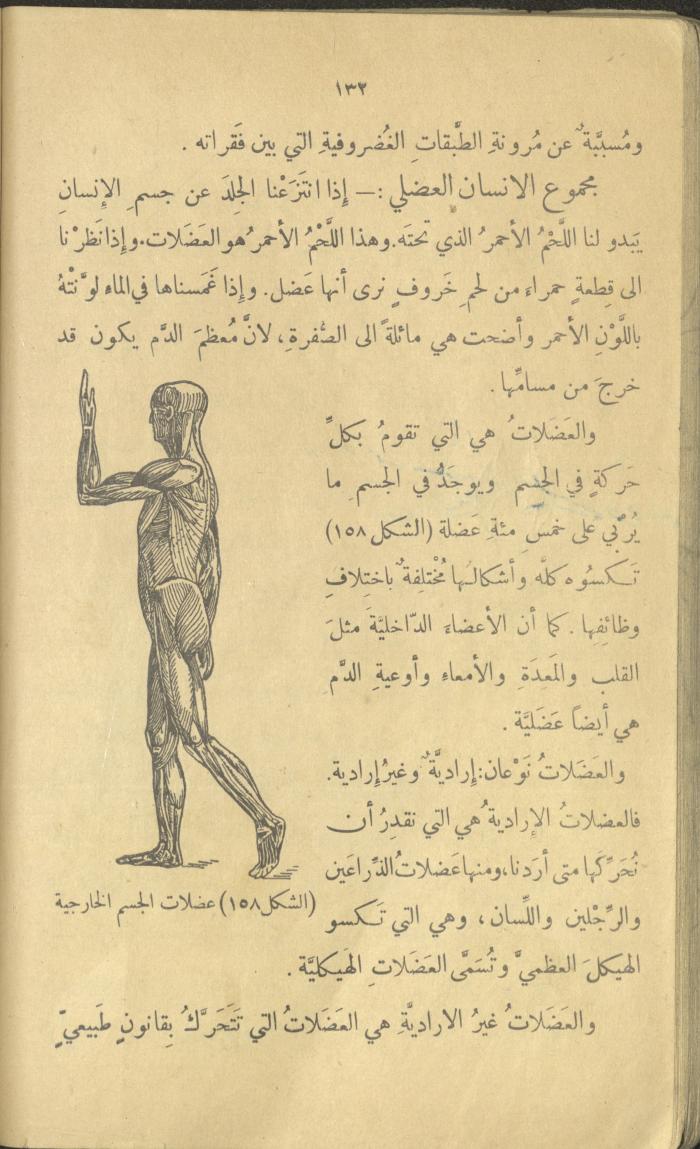 ١٣٢
ومُسبَّبَةٌ عن مُرونةِ الطَّبقاتِ الغُضروفيةِ التي بين فَقراته .
مجموع الانسان العضلي :— إِذا انتَزَعْنا الجِلدَ عن جسمِ الإِنسانِ
يَبدو لنا اللَّحْمُ الأحمرُ الذي تحتَه. وهذا اللَّحْمُ الأحمرُ هو العَضَلات. وإِذا نَظَرْنا
الى قِطعةٍ حمراءَ من لحمِ خَروفٍ نرى أنها عَضل. وإِذا غَمَسناها في الماءِ لوَّنتْهُ
باللَّوْنِ الأحمر وأضحت هي مائلةً الى الصُّفرةِ، لانَّ مُعظمَ الدَّم يكون قد
خرجَ من مسامِّها .
والعَضَلاتُ هي التي تقومُ بكلِّ
حَركةٍ في الجسم ويوجَدُ في الجسمِ ما
يُرْبي على خمسِ مئةِ عَضلة (الشكل ١٥٨)
تَكسُوه كلَّه وأشكالُها مُخْتلِفةٌ باختِلافِ
وظائفِها . كما أن الأعضاءَ الدّاخليَّةَ مثلَ
القلبِ والمَعِدَةِ والأمعاءِ وأوعيةِ الدَّمِ
هي أيضاً عَضَليَّة .
والعَضَلاتُ نَوْعان: إِراديَّةٌ وغيرُ إِرادية.
فالعضلاتُ الإِراديةُ هي التي نقدِرُ أن
نُحَرِّكَها متى أرَدنا، ومنها عَضلاتُ الذِّراعَين
والرِّجْلين واللِّسان، وهي التي تَكسو
(الشكل ١٥٨) عضلات الجسم الخارجية
الهيكلَ العظميَّ وتُسَمَّى العَضَلاتِ الهَيكليَّة .
والعَضَلاتُ غيرُ الاراديَّةِ هي العَضَلاتُ التي تَتَحَرَّكُ بِقانونٍ طَبيعيٍّ